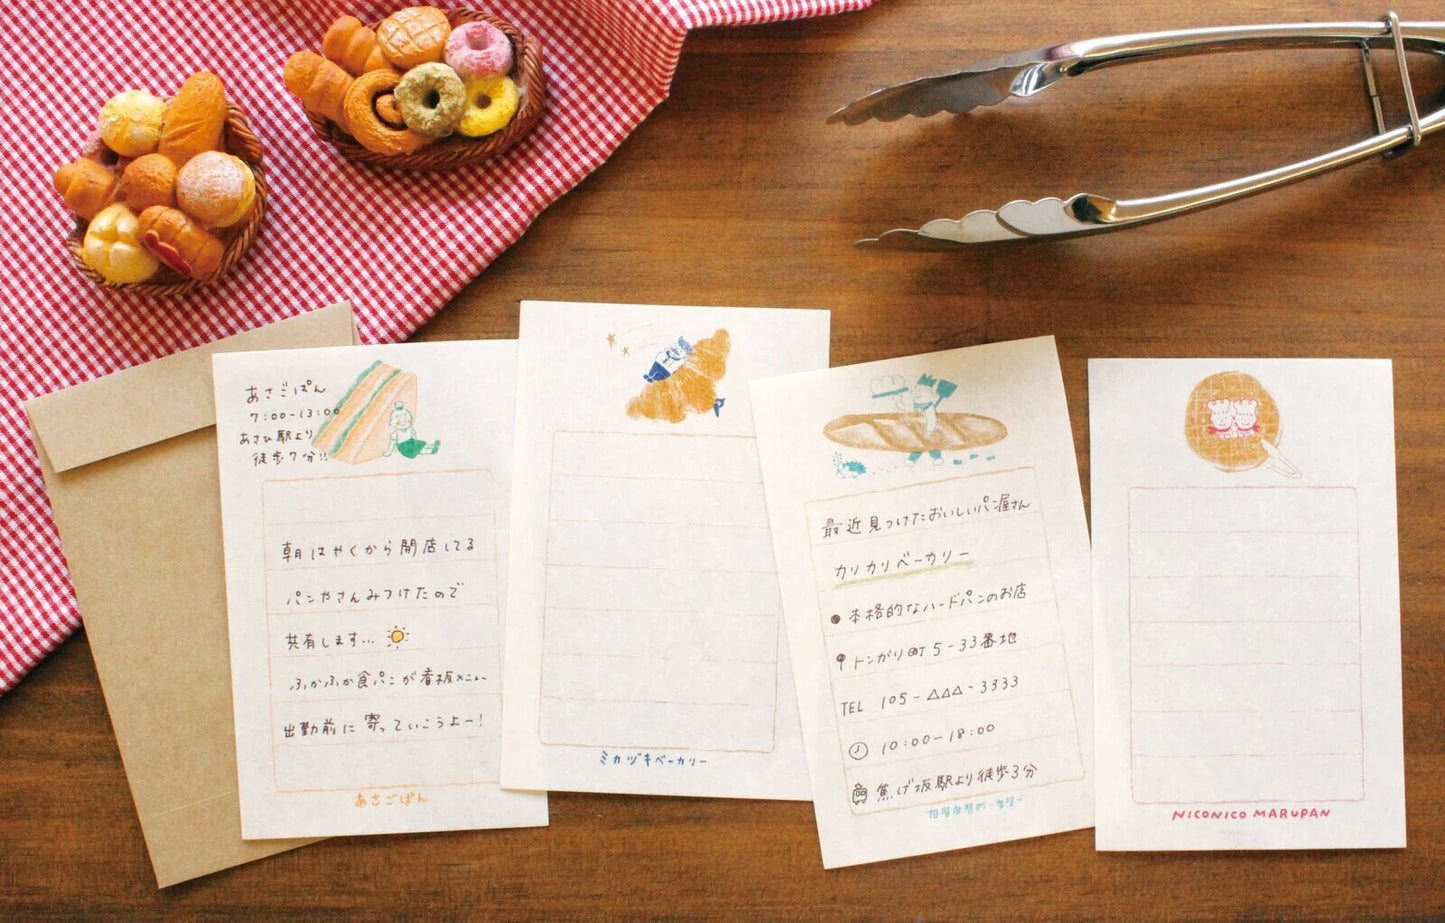 あさごぱん
7:00-13:00
あさひ駅より
徒歩7分!!
朝はやくから開店してる
パンやさんみつけたので
共有します…
ふかふか食パンが看板メニュー
出勤前に寄っていこうよー!
あさごぱん
ミカヅキベーカリー
最近見つけたおいしいパン屋さん
カリカリベーカリー
本格的なハードパンのお店
トンガリ町5-33番地
TEL 105-△△△-3333
10:00-18:00
焦げ坂駅より徒歩3分
NICONICO MARUPAN